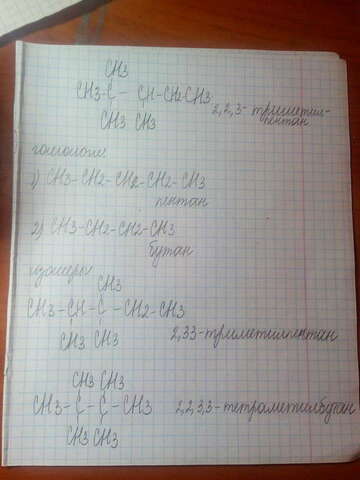 CH3
CH3-C - CH-CH2-CH3
CH3 CH3
2,2,3-триметил-
пентан
гомологи
1) CH3-CH2-CH2-CH2-CH3
пентан
2) CH3-CH2-CH2-CH3
бутан
изомеры
CH3
CH3-CH-C-CH2-CH3
CH3 CH3
2,33-триметилпентан
CH3 CH3
CH3-C-C-CH3
CH3 CH3
2,2,3,3-тетраметилбутан